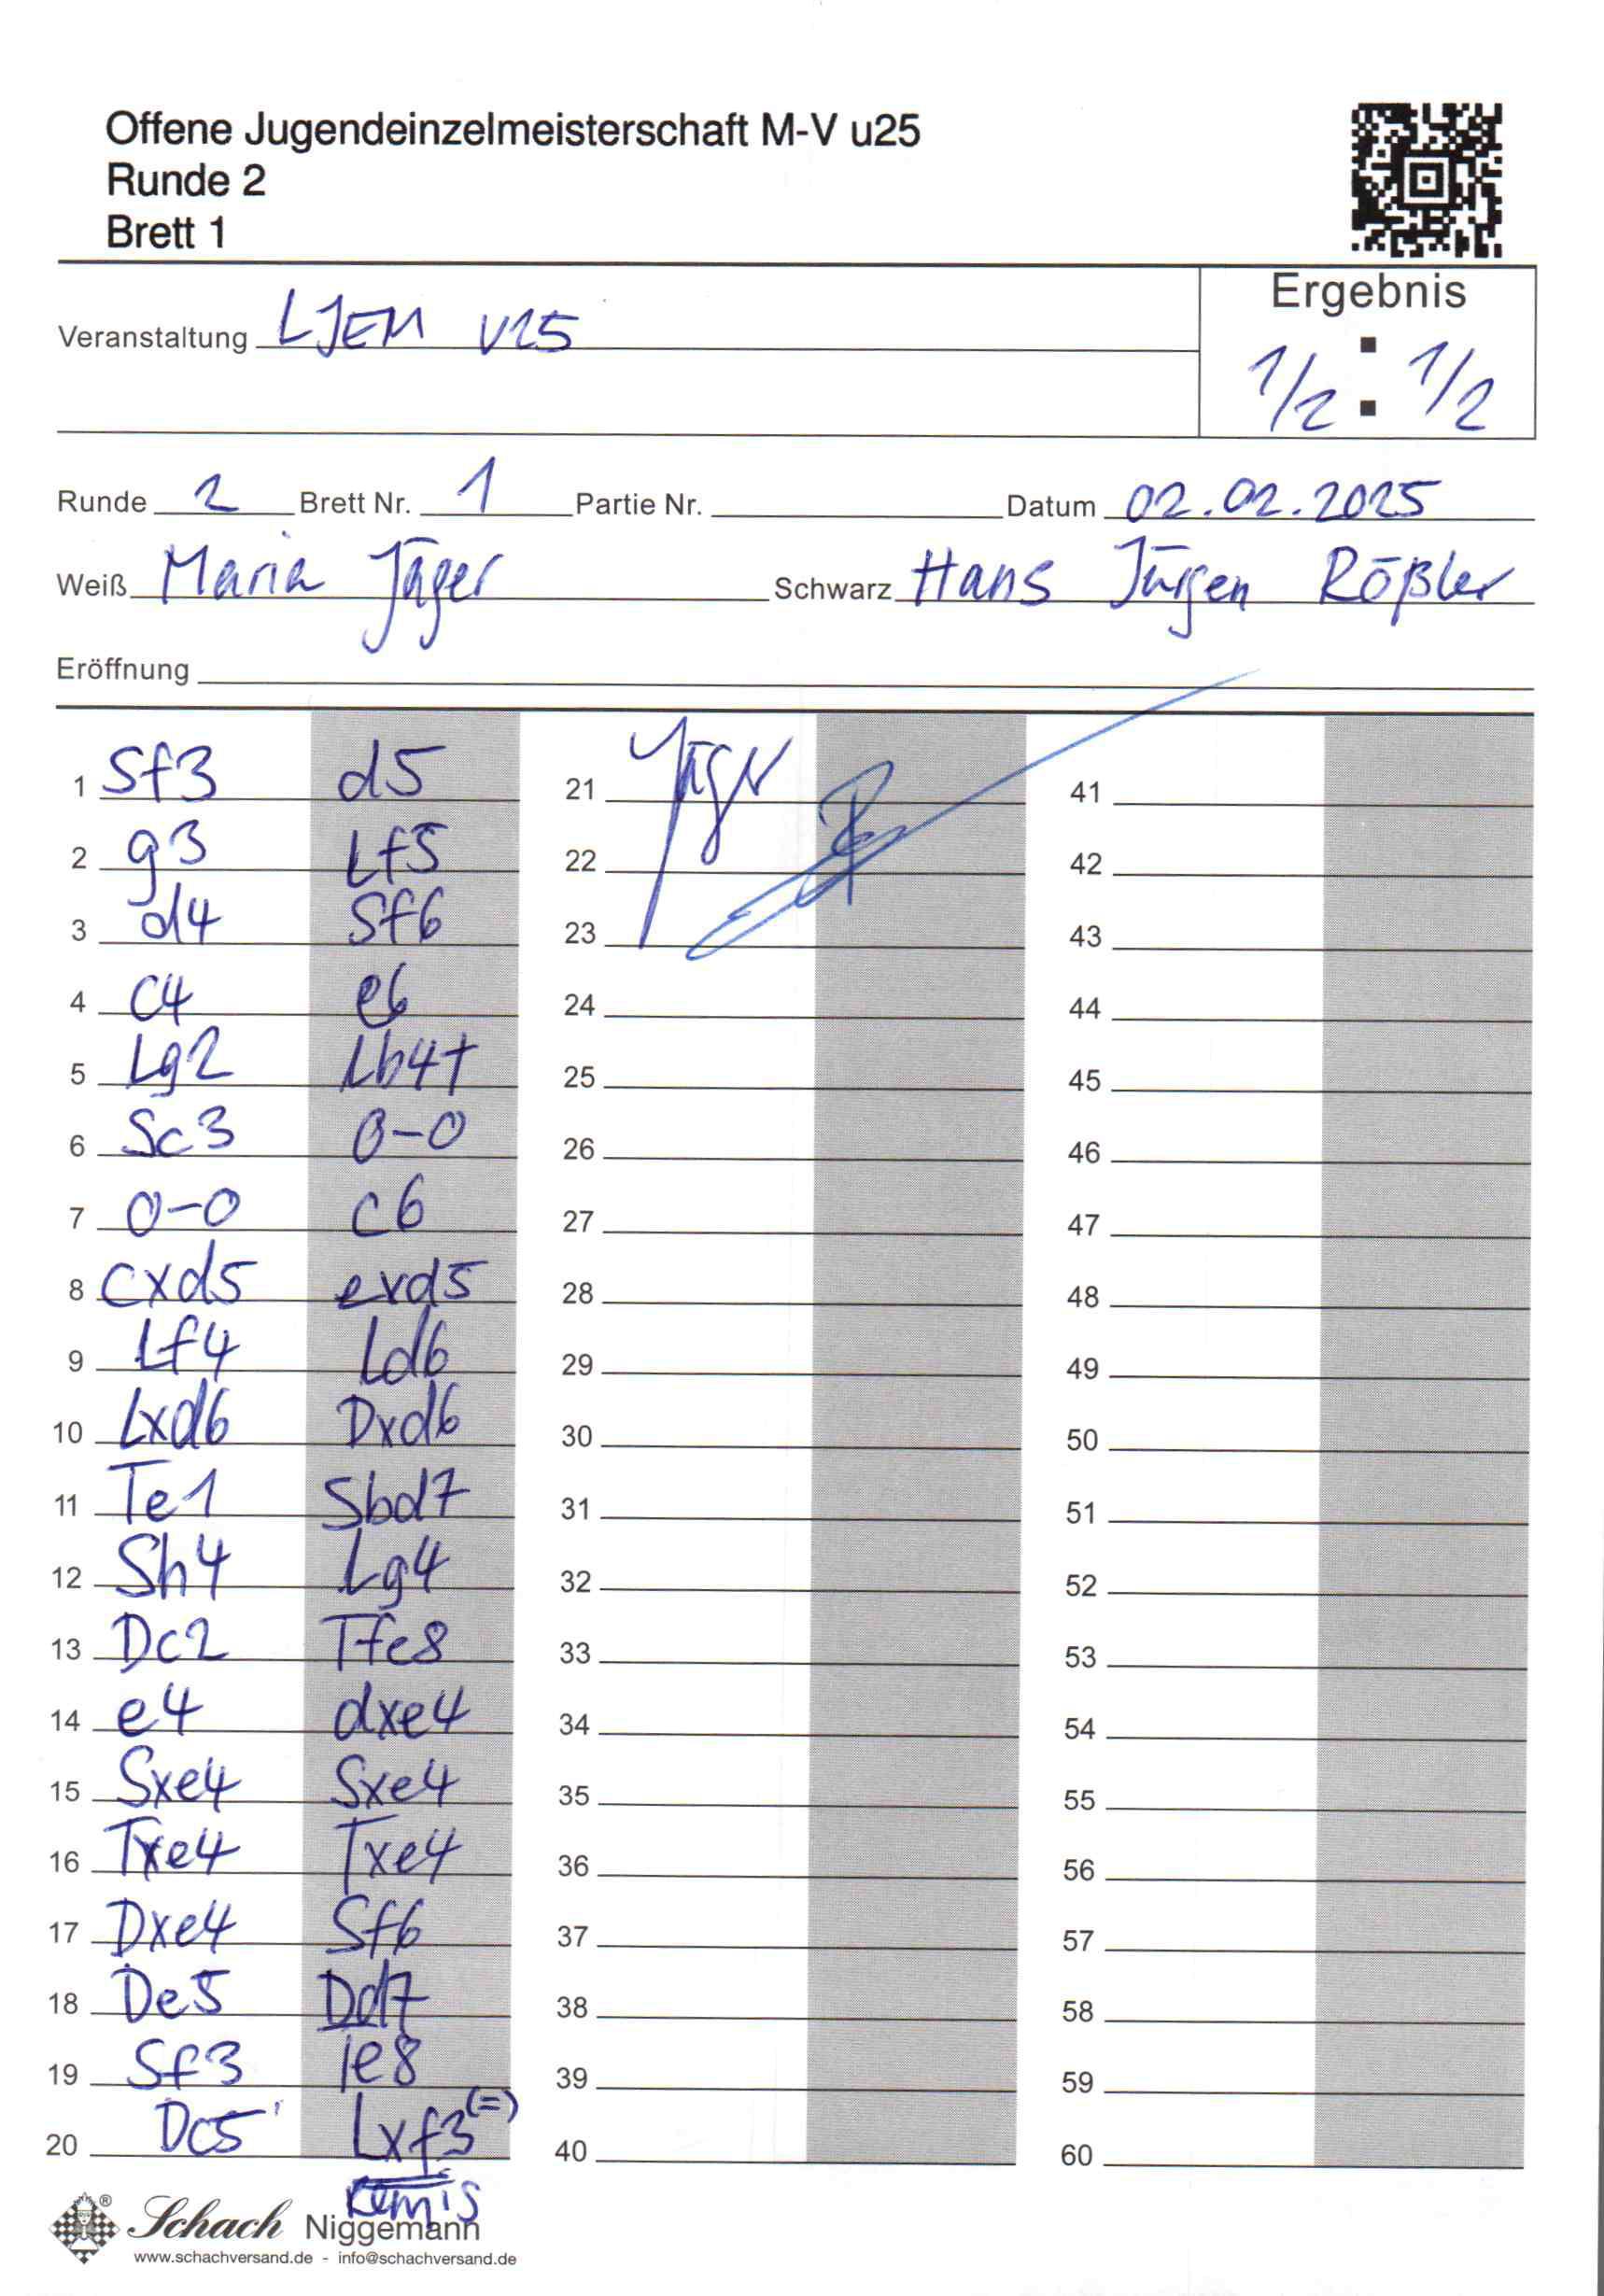 Offene Jugendeinzelmeisterschaft M-V u25
Runde 2
Brett 1
Ergebnis
Veranstaltung LJEM U25
1/2 : 1/2
Runde 2 Brett Nr. 1 Partie Nr. Datum 02.02.2025
Weiß Maria Jäger Schwarz Hans Jürgen Rößler
Eröffnung
1 Sf3 d5
2 g3 Lf5
3 d4 Sf6
4 c4 e6
5 Lg2 Lb4+
6 Sc3 0-0
7 0-0 c6
8 cxd5 exd5
9 Lf4 Ld6
10 Lxd6 Dxd6
11 Te1 Sbd7
12 Sh4 Lg4
13 Dc2 Tfe8
14 e4 dxe4
15 Sxe4 Sxe4
16 Txe4 Txe4
17 Dxe4 Sf6
18 De5 Dd7
19 Sf3 Te8
20 Dc5 Lxf3 (=)
Remis
21 Jäger
22
23
24
25
26
27
28
29
30
31
32
33
34
35
36
37
38
39
40
41
42
43
44
45
46
47
48
49
50
51
52
53
54
55
56
57
58
59
60
® Schach Niggemann
www.schachversand.de - info@schachversand.de